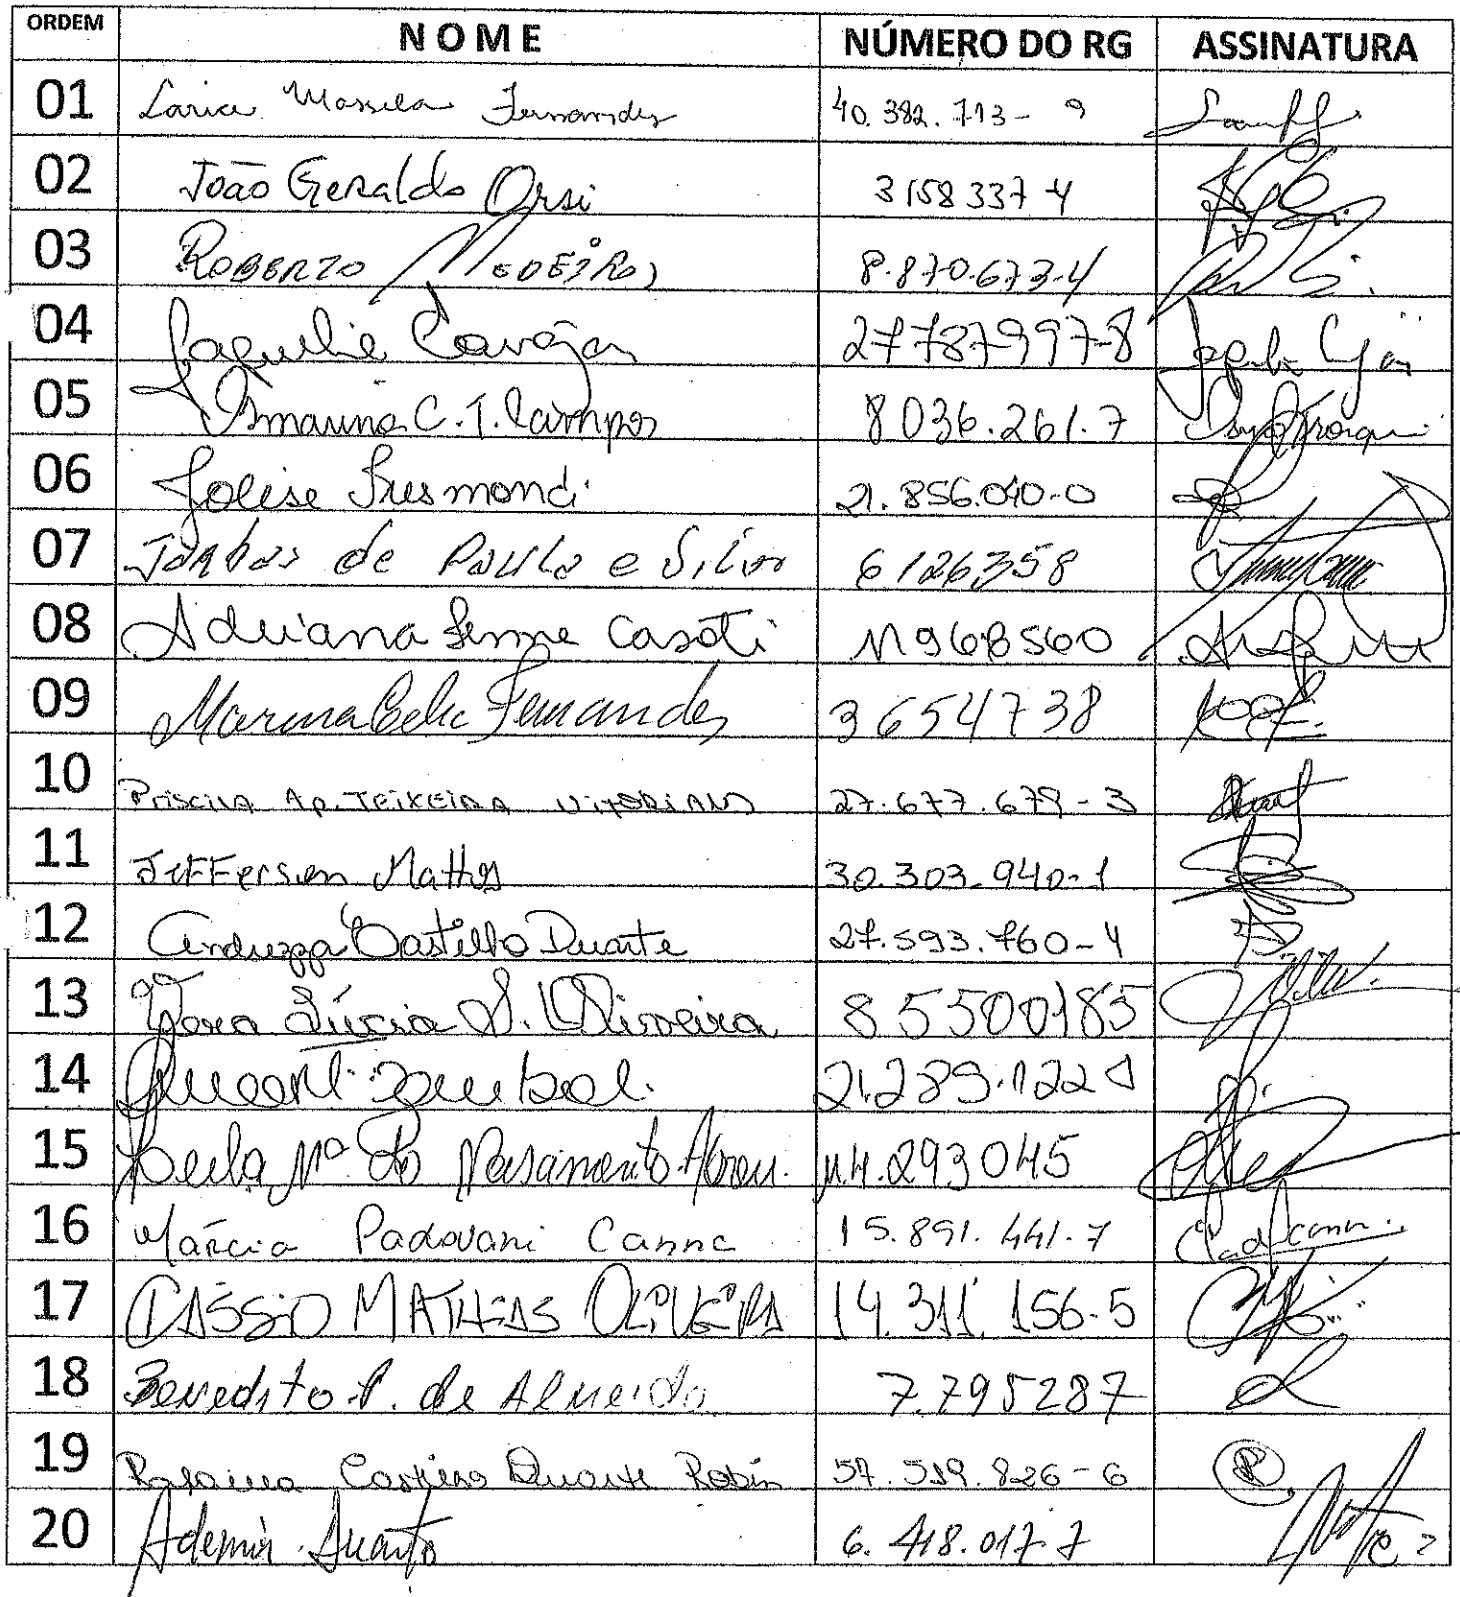 ORDEM NOME NÚMERO DO RG ASSINATURA
01 Fernandes 40.382.713-9
02 João Geraldo Orsi 3158337-4
03 ROBERTO MEDEIROS 8.870.673-4
04 27787997-8
05 Ismaura C. T. Campos 8036.261.7
06 Jolise 21.856.040-0
07 Jarbas de Paula e Silva 6126358
08 Adriana Leme Casoti 11968560
09 Marina Celia Fernandes 36547738
10 PRISCILA AP. TEIXEIRA VITORIANO 27.677.679-3
11 Jefferson Mattos 30.303.940-1
12 Andrezza Castilho Duarte 27.593.760-4
13 Vera Lúcia S. Oliveira 85500185
14 21.289.122
15 Leila Mª do Nascimento Abreu. 14.293045
16 Márcia Padovani Canna 15.891.441-7
17 CÁSSIO MATHIAS OLIVEIRA 14.311.156-5
18 Benedito P. de Almeida 7.795287
19 Castilho Duarte Robin 57.519.826-6
20 Ademir Duarte 6.418.017-7